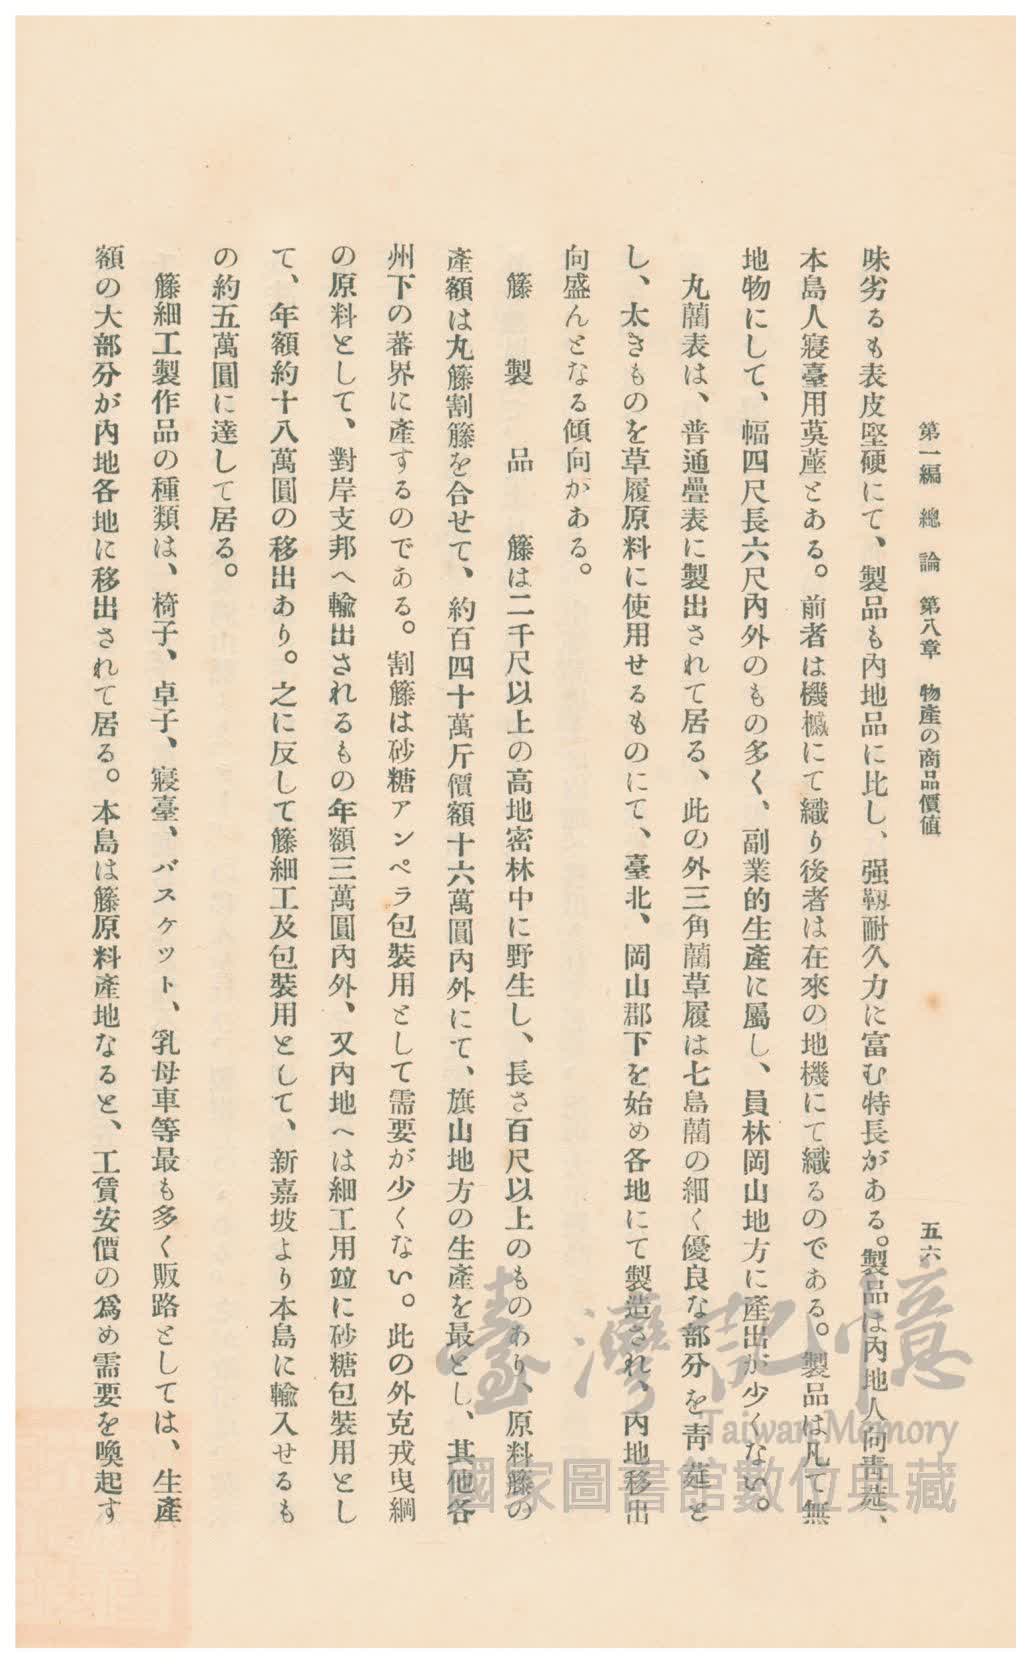 第一編 總論 第八章 物產の商品價値 五六
味劣るも表皮堅硬にて、製品も內地品に比し、强靱耐久力に富む特長がある。製品は內地人向靑莚、
本島人寢臺用茣蓙とある。前者は機櫶にて織り後者は在來の地機にて織るのである。製品は凡て無
地物にして、幅四尺長六尺內外のもの多く、副業的生產に屬し、員林岡山地方に產出が少くない。
丸藺表は、普通疊表に製出されて居る、此の外三角藺草履は七島藺の細く優良な部分を靑莚と
し、太きものを草履原料に使用せるものにて、臺北、岡山郡下を始め各地にて製造され、內地移出
向盛んとなる傾向がある。
籐製品 籐は二千尺以上の高地密林中に野生し、長さ百尺以上のものあり、原料籐の
產額は丸籐割籐を合せて、約百四十萬斤價額十六萬圓內外にて、旗山地方の生產を最とし、其他各
州下の蕃界に產するのである。割籐は砂糖アンペラ包裝用として需要が少くない。此の外克戎曳綱
の原料として、對岸支邦へ輸出されるもの年額三萬圓內外、又內地へは細工用竝に砂糖包裝用とし
て、年額約十八萬圓の移出あり。之に反して籐細工及包裝用として、新嘉坡より本島に輸入せるも
の約五萬圓に達して居る。
籐細工製作品の種類は、椅子、卓子、寢臺、バスケット、乳母車等最も多く販路としては、生產
額の大部分が內地各地に移出されて居る。本島は籐原料產地なると、工賃安價の爲め需要を喚起す
臺灣記憶
Taiwan Memory
國家圖書館數位典藏